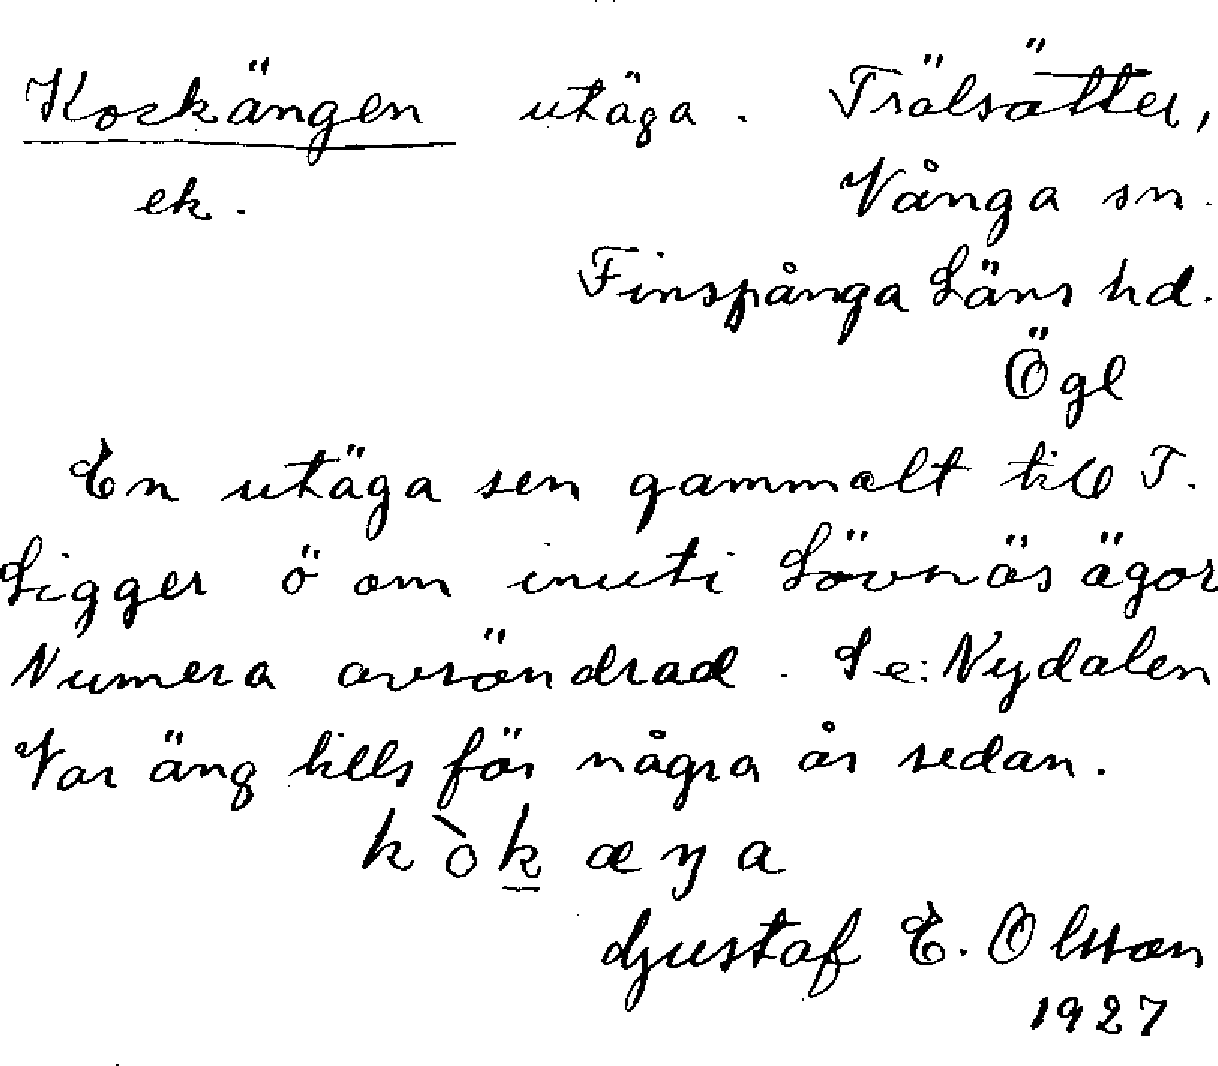 Kockängen utäga. Trälsätter,
ek. Vånga sn.
Finspånga Läns hd.
Ögl
En utäga sen gammalt till T.
Ligger ö om inuti Lövnäs ägor
Numera avsöndrad. Se: Nydalen
Var äng tills för några år sedan.
k ò k æ ŋ a
Gustaf E. Olsson
1927